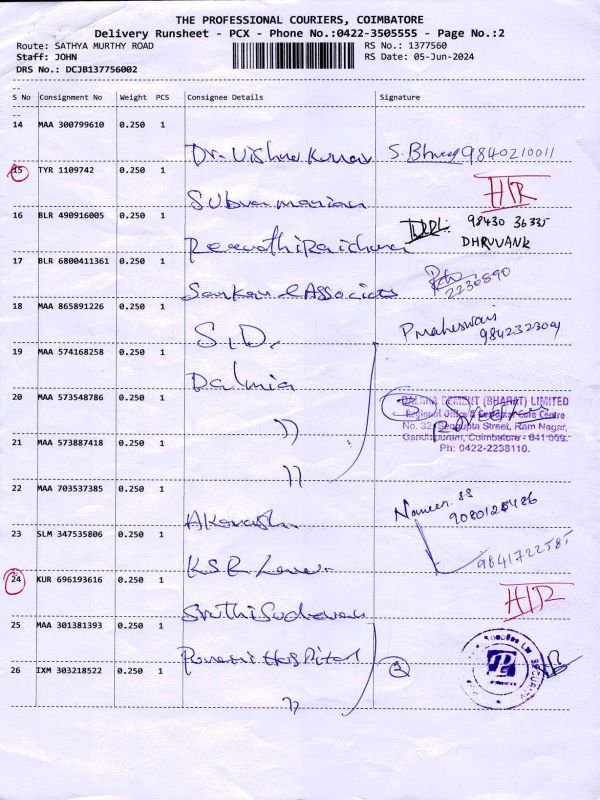 THE PROFESSIONAL COURIERS, COIMBATORE
Delivery Runsheet - PCX - Phone No.:0422-3505555 - Page No.:2
Route: SATHYA MURTHY ROAD RS No.: 1377560
Staff: JOHN RS Date: 05-Jun-2024
DRS No.: DCJB137756002
S No Consignment No Weight PCS Consignee Details Signature
14 MAA 300799610 0.250 1
Dr. Vishnu Kumar S. 9840210011
15 TYR 1109742 0.250 1
Subramanian
16 BLR 490916005 0.250 1
98430 36335
DHRUVANK
17 BLR 6800411361 0.250 1
Sankar & Associates 2236890
18 MAA 865891226 0.250 1
S.D. P maheswari
9842323091
19 MAA 574168258 0.250 1
Dalmia
20 MAA 573548786 0.250 1
DALMIA CEMENT (BHARAT) LIMITED
No. 32, Sengupta Street, Ram Nagar,
Gandhipuram, Coimbatore - 641 009.
Ph: 0422-2238110.
"
21 MAA 573887418 0.250 1
"
22 MAA 703537385 0.250 1
Naween
9080128486
23 SLM 347535806 0.250 1
K.S.R
24 KUR 696193616 0.250 1
25 MAA 301381393 0.250 1
Hospital
26 IXM 303218522 0.250 1
2
"